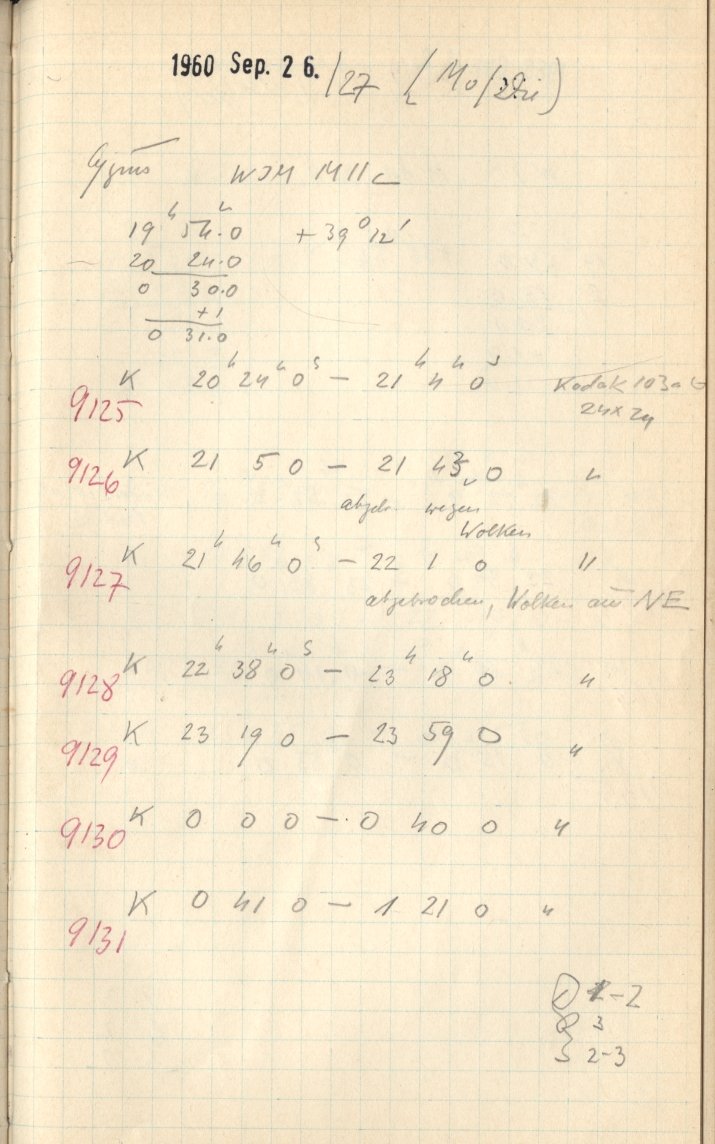 1960 Sep. 26./27 (Mo/Die)
Cygnus
19ʰ 54.0 + 39° 12'
20 24.0
0 30.0
+1
0 31.0
9125 K 20ʰ 24ᵐ 0ˢ – 21ʰ 4ᵐ 0ˢ Kodak 103a
24x24
9126 K 21 5 0 – 21 43 0 "
abgebr. wegen
Wolken
9127 K 21ʰ 46ᵐ 0ˢ – 22 1 0 "
abgebrochen, Wolken aus NE
9128 K 22ʰ 38ᵐ 0ˢ – 23ʰ 18ᵐ 0 "
9129 K 23 19 0 – 23 59 0 "
9130 K 0 0 0 – 0 40 0 "
9131 K 0 41 0 – 1 21 0 "
1-2
3
S 2-3